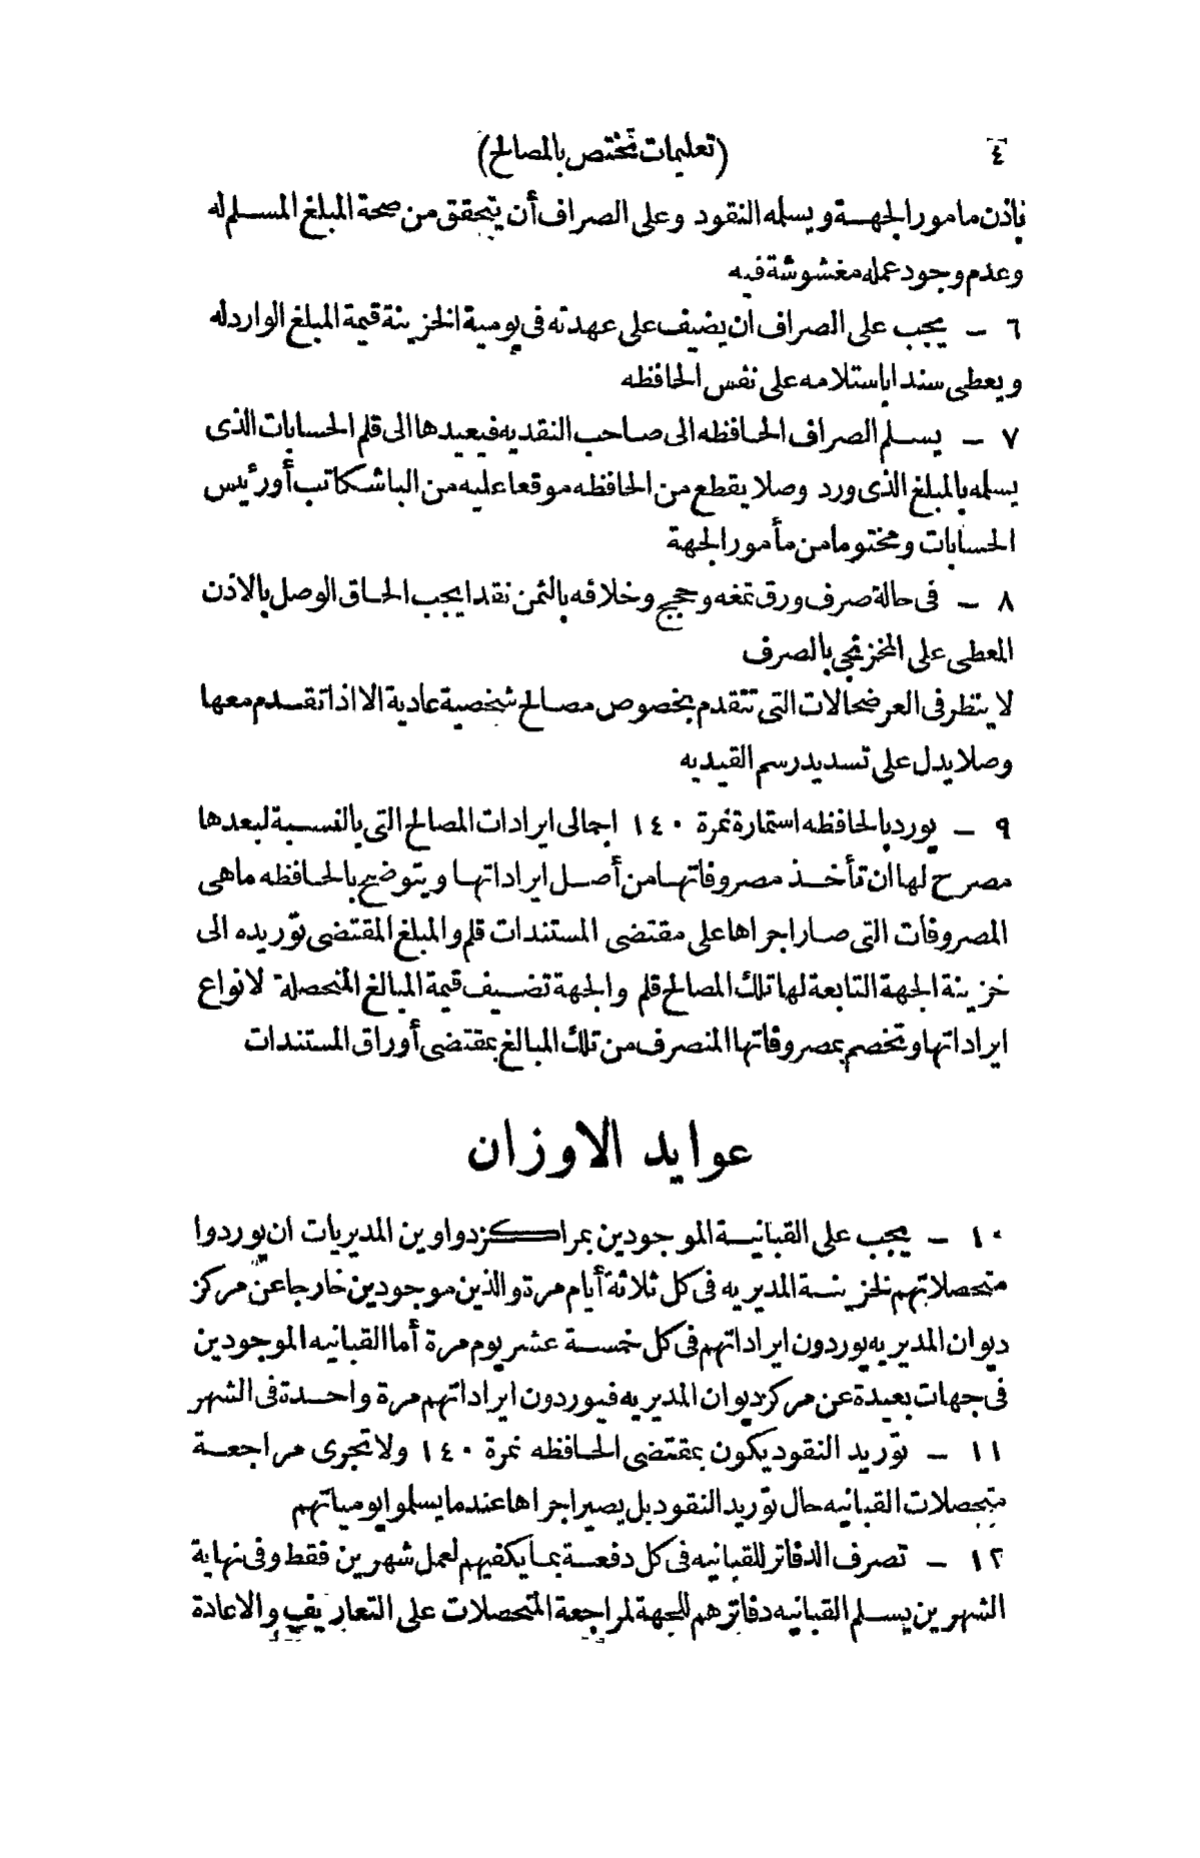 ٤
(تعليمات تختص بالمصالح)
باذن مامور الجهة ويسلمه النقود وعلى الصراف أن يتحقق من صحة المبلغ المسلم له
وعدم وجود عمله مغشوشة فيه
٦ – يجب على الصراف ان يضيف على عهدته فى يومية الخزينة قيمة المبلغ الوارد له
ويعطى سندا باستلامه على نفس الحافظه
٧ – يسلم الصراف الحافظه الى صاحب النقديه فيعيدها الى قلم الحسابات الذى
يسلمه بالمبلغ الذى ورد وصلا يقطع من الحافظه موقعا عليه من الباشكاتب أورئيس
الحسابات ومختوما من مأمور الجهة
٨ – فى حالة صرف ورق تمغه وحجج وخلافه بالثمن نقدا يجب الحاق الوصل بالاذن
المعطى على المخزنجى بالصرف
لا ينظر فى العرضحالات التى تتقدم بخصوص مصالح شخصية عادية الا اذا تقدم معها
وصلا يدل على تسديد رسم القيديه
٩ – يورد بالحافظه استمارة نمرة ١٤٠ اجمالى ايرادات المصالح التى بالنسبة لبعدها
مصرح لها ان تأخذ مصروفاتها من أصل ايراداتها ويتوضح بالحافظه ماهى
المصروفات التى صار اجراها على مقتضى المستندات قلم والمبلغ المقتضى توريده الى
خزينة الجهة التابعة لها تلك المصالح قلم والجهة تضيف قيمة المبالغ المتحصلة لانواع
ايراداتها وتخصم بمصروفاتها المنصرف من تلك المبالغ بمقتضى أوراق المستندات
عوايد الاوزان
١٠ – يجب على القبانية الموجودين بمراكز دواوين المديريات ان يوردوا
متحصلاتهم لخزينة المديريه فى كل ثلاثة أيام مرة والذين موجودين خارجا عن مركز
ديوان المديريه يوردون ايراداتهم فى كل خمسة عشر يوم مرة أما القبانيه الموجودين
فى جهات بعيدة عن مركز ديوان المديريه فيوردون ايراداتهم مرة واحدة فى الشهر
١١ – توريد النقود يكون بمقتضى الحافظه نمرة ١٤٠ ولا تجرى مراجعة
متحصلات القبانيه حال توريد النقود بل يصير اجراها عندما يسلموا يومياتهم
١٢ – تصرف الدفاتر للقبانيه فى كل دفعة بما يكفيهم لعمل شهرين فقط وفى نهاية
الشهرين يسلم القبانيه دفاترهم للجهة لمراجعة المتحصلات على التعاريف والاعادة